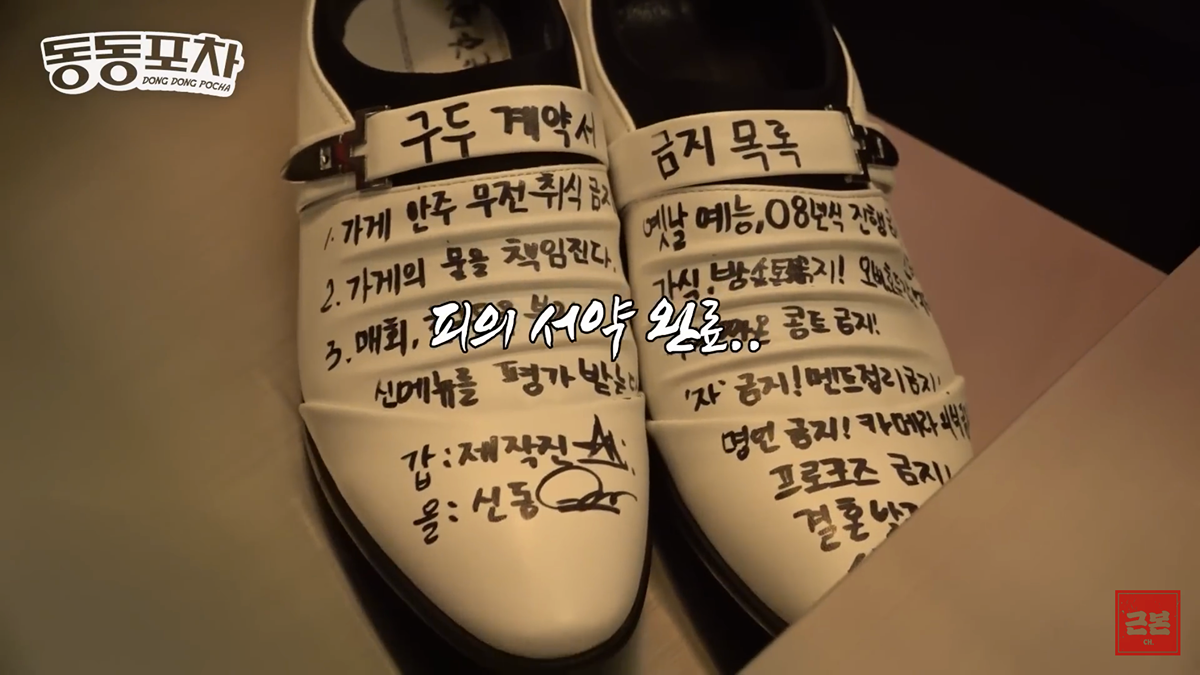 동동포차
DONG DONG POCHA
구두 계약서
1. 가게 안주 무전취식 금지
2. 가게의 물을 책임진다.
3. 매회,
신메뉴를 평가 받는다
갑 : 제작진
을 : 신동
금지 목록
옛날 예능, 08년식 진행
가식! 방송톤 금지!
콩트 금지!
'자' 금지! 멘트정리 금지!
명언 금지! 카메라 의식
프로포즈 금지!
결혼
피의 서약 완료..
근본
CH.